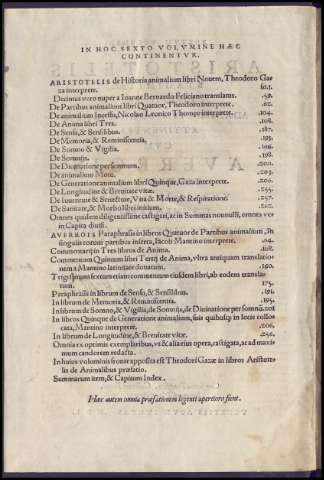 IN HOC SEXTO VOLVMINE HÆC
CONTINENTVR.
ARISTOTELIS de Historia animalium libri Nouem, Theodoro Ga-
za interprete. fo.1.
Decimus vero nuper a Ioanne Bernardo Feliciano translatus. .59.
De Partibus animalium libri Quatuor, Theodoro interprete. .62.
De animalium Incessu, Nicolao Leonico Thomeo interprete. .104.
De Anima libri Tres. .108.
De Sensu, & Sensilibus. .187.
De Memoria, & Reminiscentia. .193.
De Somno & Vigilia. .196.
De Somnijs. .198.
De Diuinatione per somnum. .201.
De animalium Motu. .203.
De Generatione animalium libri Quinque, Gaza interprete. .206.
De Longitudine & Breuitate vitæ. .255.
De Iuuentute & Senectute, Vita & Morte, & Respiratione. .257.
De Sanitate, & Morbo libri initium. .262.
Omnes quidem diligentissime castigati, ac in Summas nonnulli, omnes vero
in Capita diuisi.
AVERROIS Paraphrasis in libros Quatuor de Partibus animalium, in
singulis eorum partibus inserta, Iacob Mantino interprete. .64.
Commentarij in Tres libros de Anima. .108.
Commentum Quintum libri Tertij de Anima, vltra antiquam translatio-
nem a Mantino latinitate donatum. .160.
Trigesimum sextum etiam commentum eiusdem libri, ab eodem transla-
tum. .175.
Paraphrasis in librum de Sensu, & Sensilibus. .191.
In librum de Memoria, & Reminiscentia. .195.
In librum de Somno, & Vigilia, de Somnijs, de Diuinatione per somnum. .201
In libros Quinque de Generatione animalium, suis quibusque in locis collo-
cata, Mantino interprete. .206.
In librum de Longitudine, & Breuitate vitæ. .256.
Omnia ex optimis exemplaribus, vt & alia eius opera, castigata, ac ad maxi-
mum candorem redacta.
In huius voluminis fronte apposita est Theodori Gazæ in libros Aristote-
lis de Animalibus præfatio.
Summarum item, & Capitum Index.
Hæc autem omnia præfationem legenti apertiora fient.